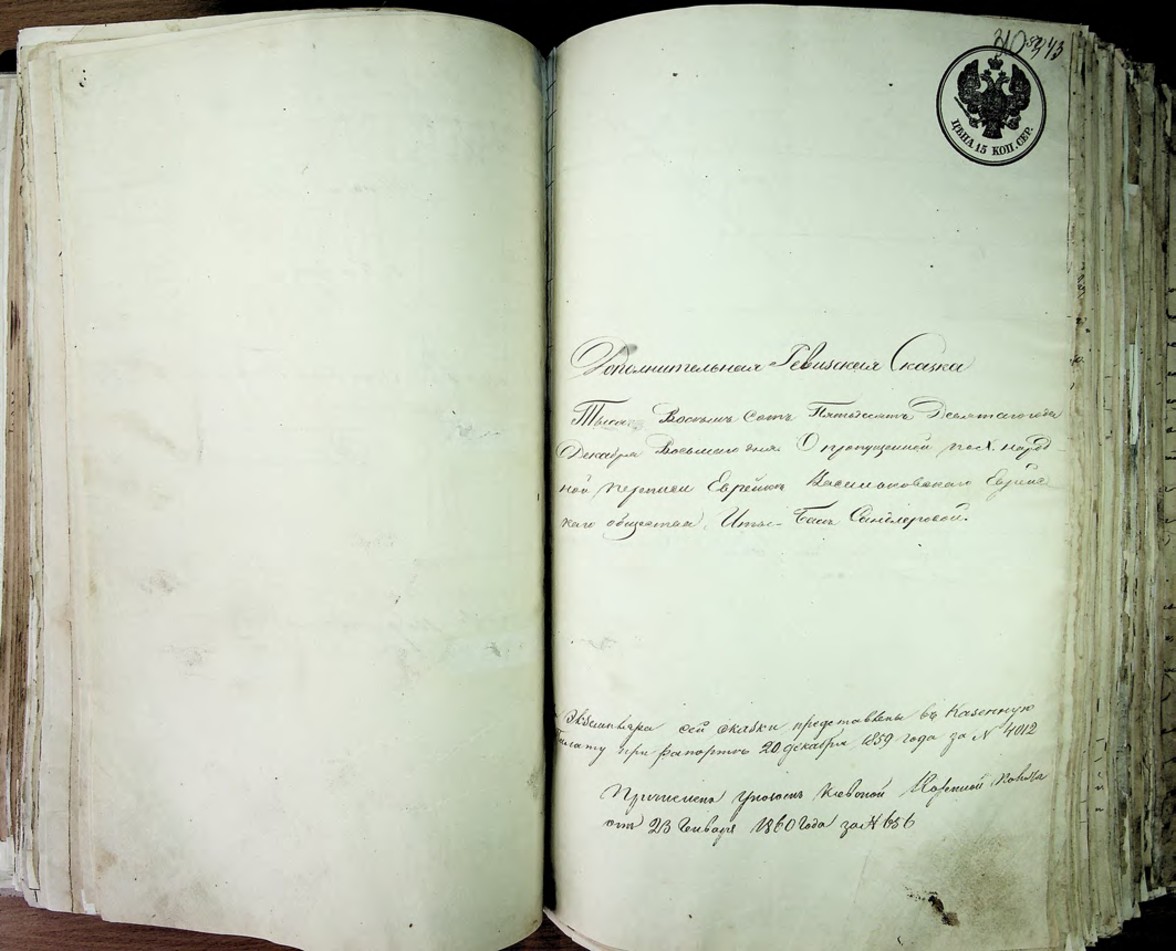 ЦѢНА 15 КОП. СЕР.
Дополнительная Ревизская Сказка
Тысяча Восемь Сотъ Пятьдесятъ Девятого года
Декабря Восьмого дня. О пропущенной по X. народ-
ной переписи Еврейкѣ Васильковскаго Еврейс
каго общества,
Экземпляра сей сказки представлены въ Казенную
Палату при рапортѣ 20 декабря 1859 года за № 4012
Казенной
отъ 23 Генваря 1860 года за № 656